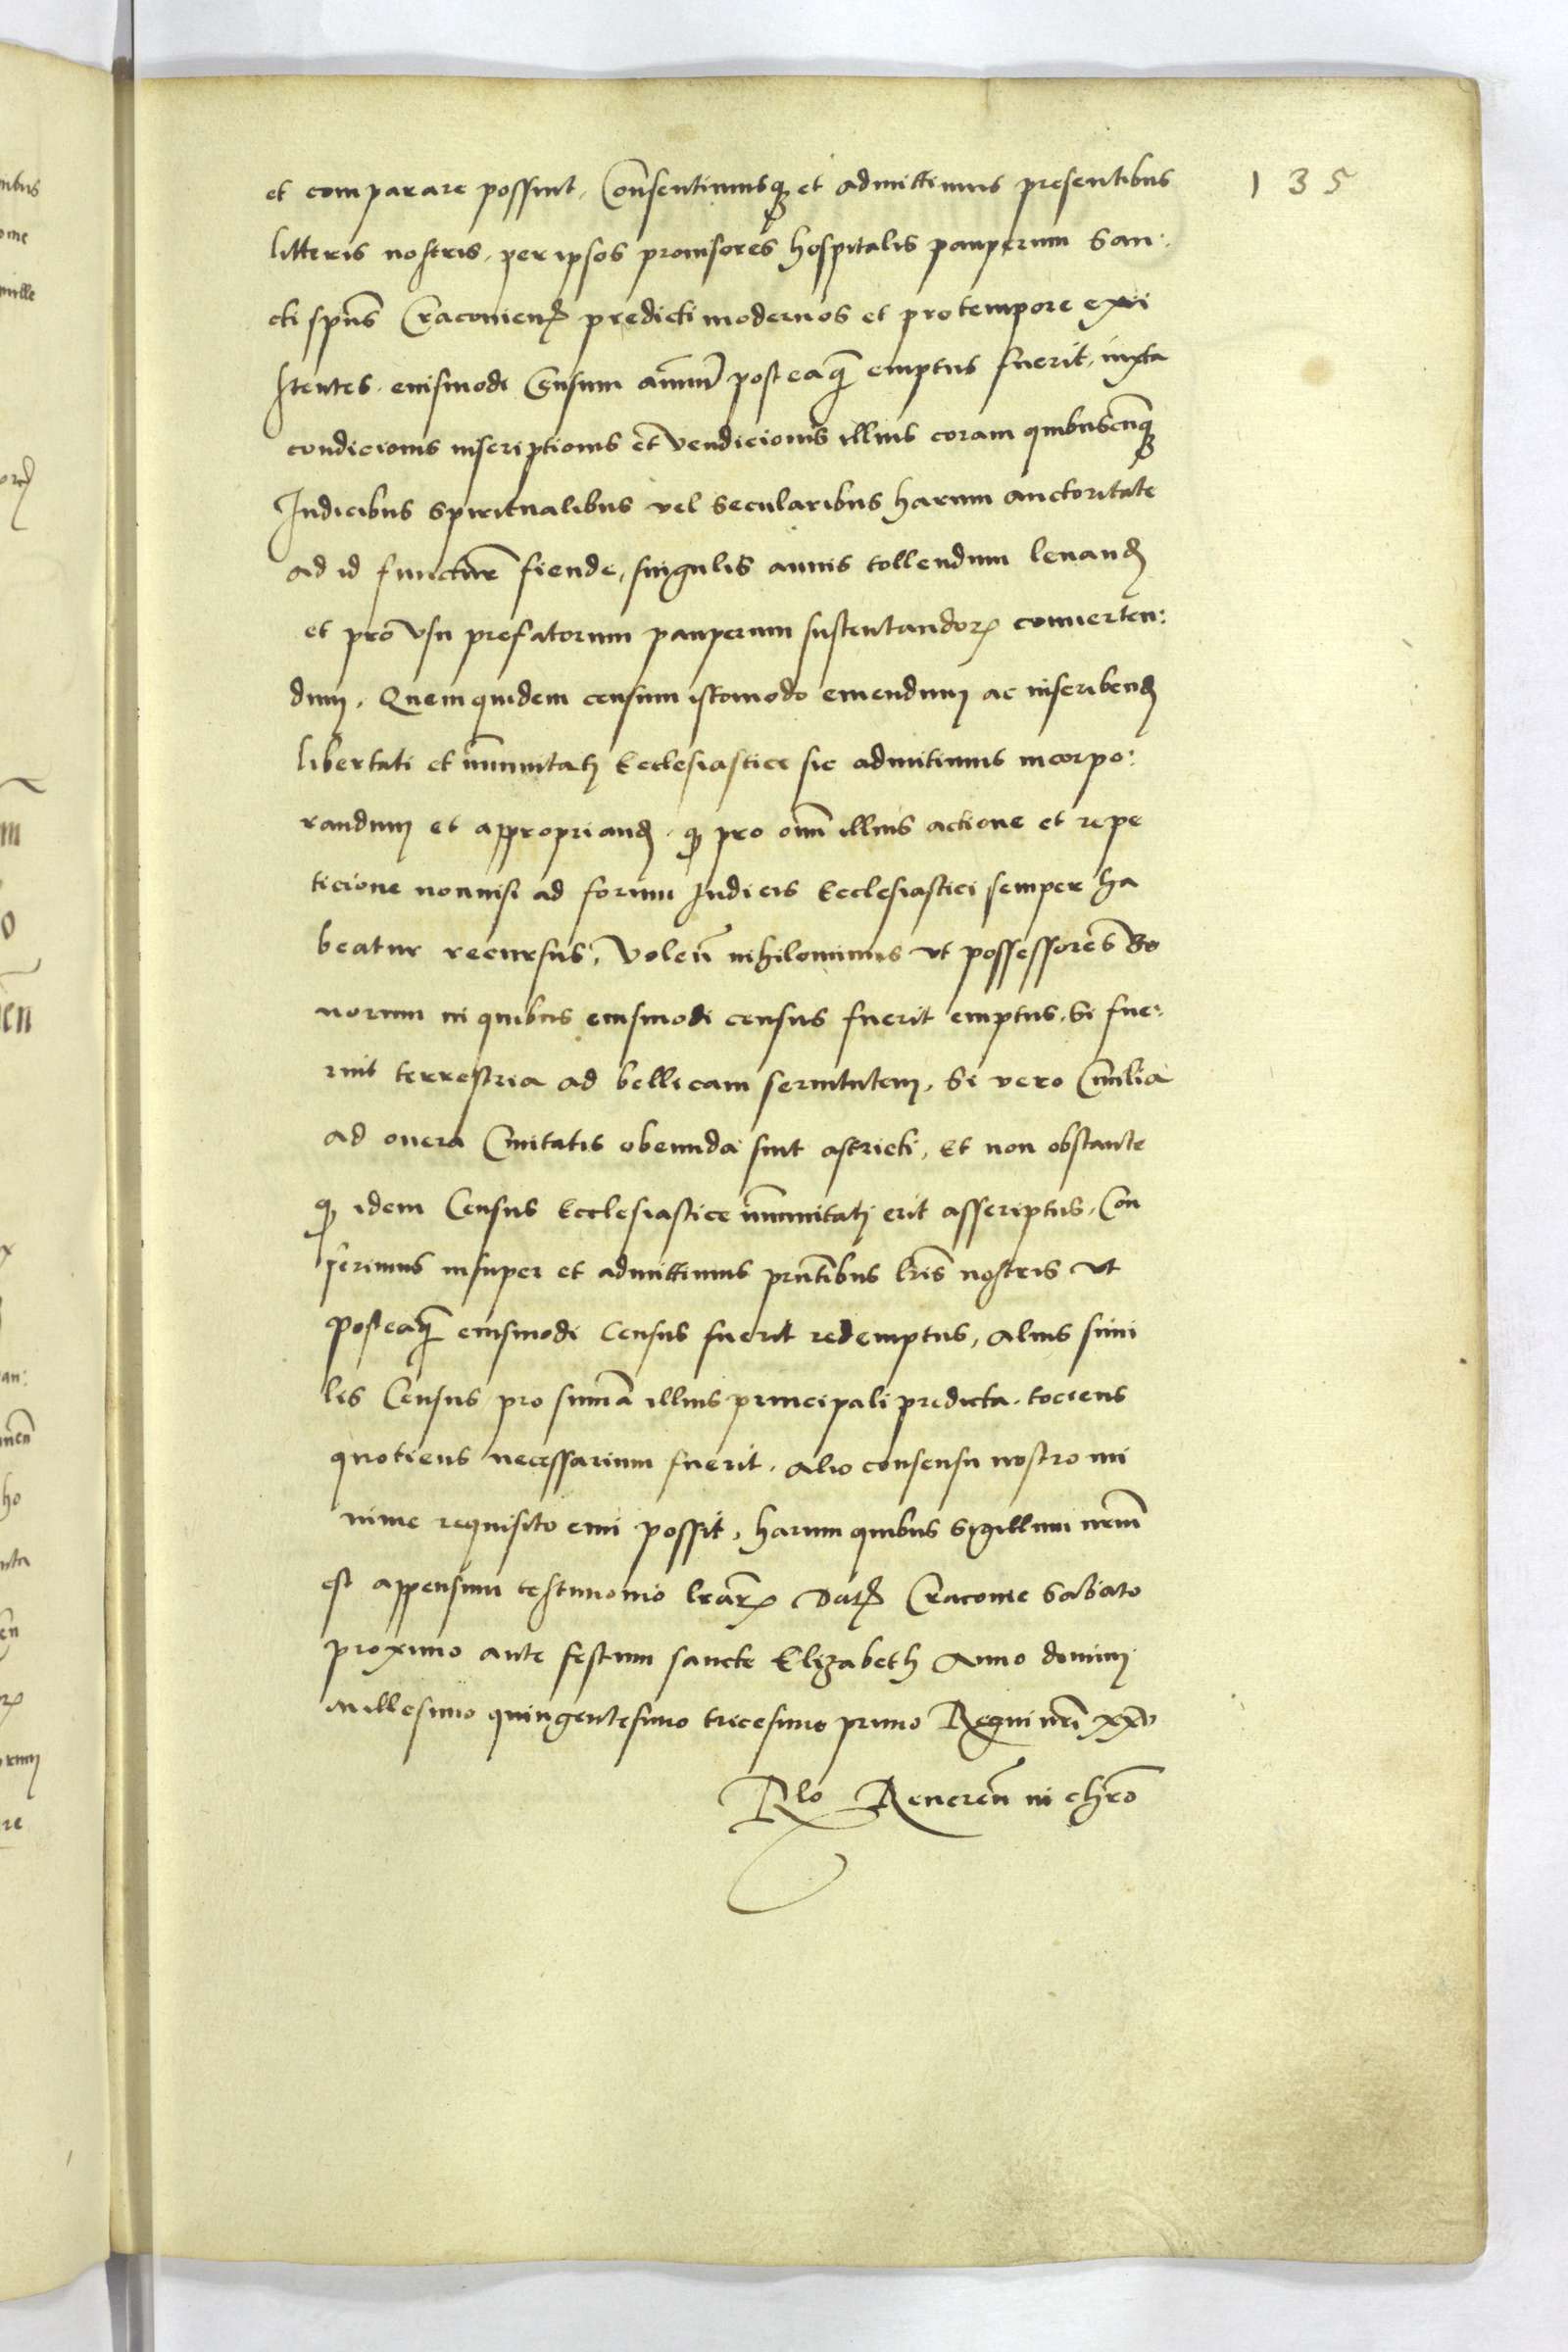 135
et comparare possint, Consentimusq3 et admittimus presentibus
litteris nostris, per ipsos prouisores hospitalis pauperum San:
cti spūs Cracouien̄ predicti modernos et pro tempore exi
stentes, eiusmodi Censum annuū posteaq̄ emptus fuerit, iuxta
condicionis inscriptionis et vendicionis illius coram quibuscūq3
Iudicibus spiritualibus vel secularibus harum auctoritate
ad id fiende, singulis annis tollendum leuand̄
et pro vsu prefatorum pauperum sustentandor̄ conuerten:
dum, Quemquidem censum istomodo emendum ac inscribend̄
libertati et immunitati Ecclesiastice sic admittimus incorpo:
randum et appropriand̄, q̄ pro omī illius actione et repe
ticione nonnisi ad forum Iudicis Ecclesiastici semper ha
beatur recursus, Volen̄ nihilominus vt possessores Bo
norum in quibus eiusmodi census fuerit emptus, Si fue:
rint terrestria ad bellicam seruitutem, Si vero Ciuilia
ad onera Ciuitatis obeunda sint astricti, Et non obstante
q̄ idem Census Ecclesiastice immunitati erit asscriptus, Con
ferimus insuper et admittimus pn̄tibus lr̄is nostris vt
posteaq̄ eiusmodi Census fuerit redemptus, alius simi
lis Census pro summa illius principali predicta, tociens
quotiens necessarium fuerit, alio consensu nostro mi
nime requisito emi possit, harum quibus Sigillum nr̄um
est appensum testimonio lr̄ar̄ Dat̄ Cracouie Sabbato
proximo ante festum sancte Elizabeth Anno domini
millesimo quingentesimo tricesimo primo Regni nr̄i xxv
Rlo Reueren̄ in chr̄o